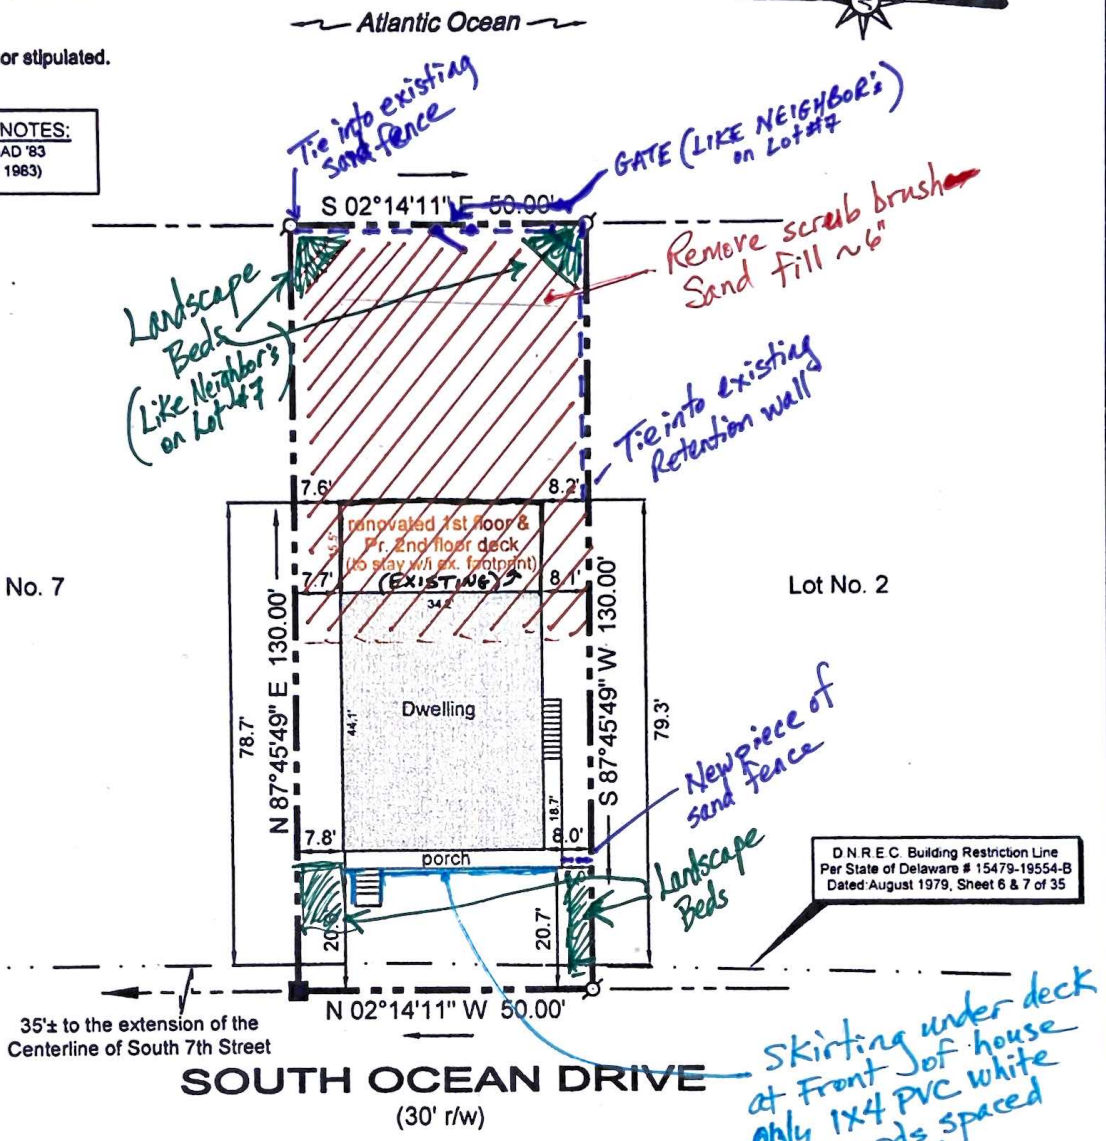 Atlantic Ocean
or stipulated.
NOTES:
AD '83
1983)
S
Tie into existing
sand fence
GATE (LIKE NEIGHBOR'S)
on Lot #7
S 02°14'11" E 50.00'
Remove scrub brush
Sand fill ~6"
Landscape
Beds
(Like Neighbor's
on Lot #7)
Tie into existing
Retention wall
7.6'
8.2'
renovated 1st floor &
Pr. 2nd floor deck
(to stay w/i ex. footprint)
(EXISTING)
15.5'
7.7'
8.1'
34.2'
No. 7
Lot No. 2
N 87°45'49" E 130.00'
S 87°45'49" W 130.00'
78.7'
79.3'
Dwelling
44.1'
New piece of
sand fence
18.7'
7.8'
8.0'
porch
Landscape
Beds
D.N.R.E.C. Building Restriction Line
Per State of Delaware # 15479-19554-B
Dated:August 1979, Sheet 6 & 7 of 35
20.
20.7'
N 02°14'11" W 50.00'
35'± to the extension of the
Centerline of South 7th Street
SOUTH OCEAN DRIVE
(30' r/w)
Skirting under deck
at Front of house
only 1x4 PVC white
spaced